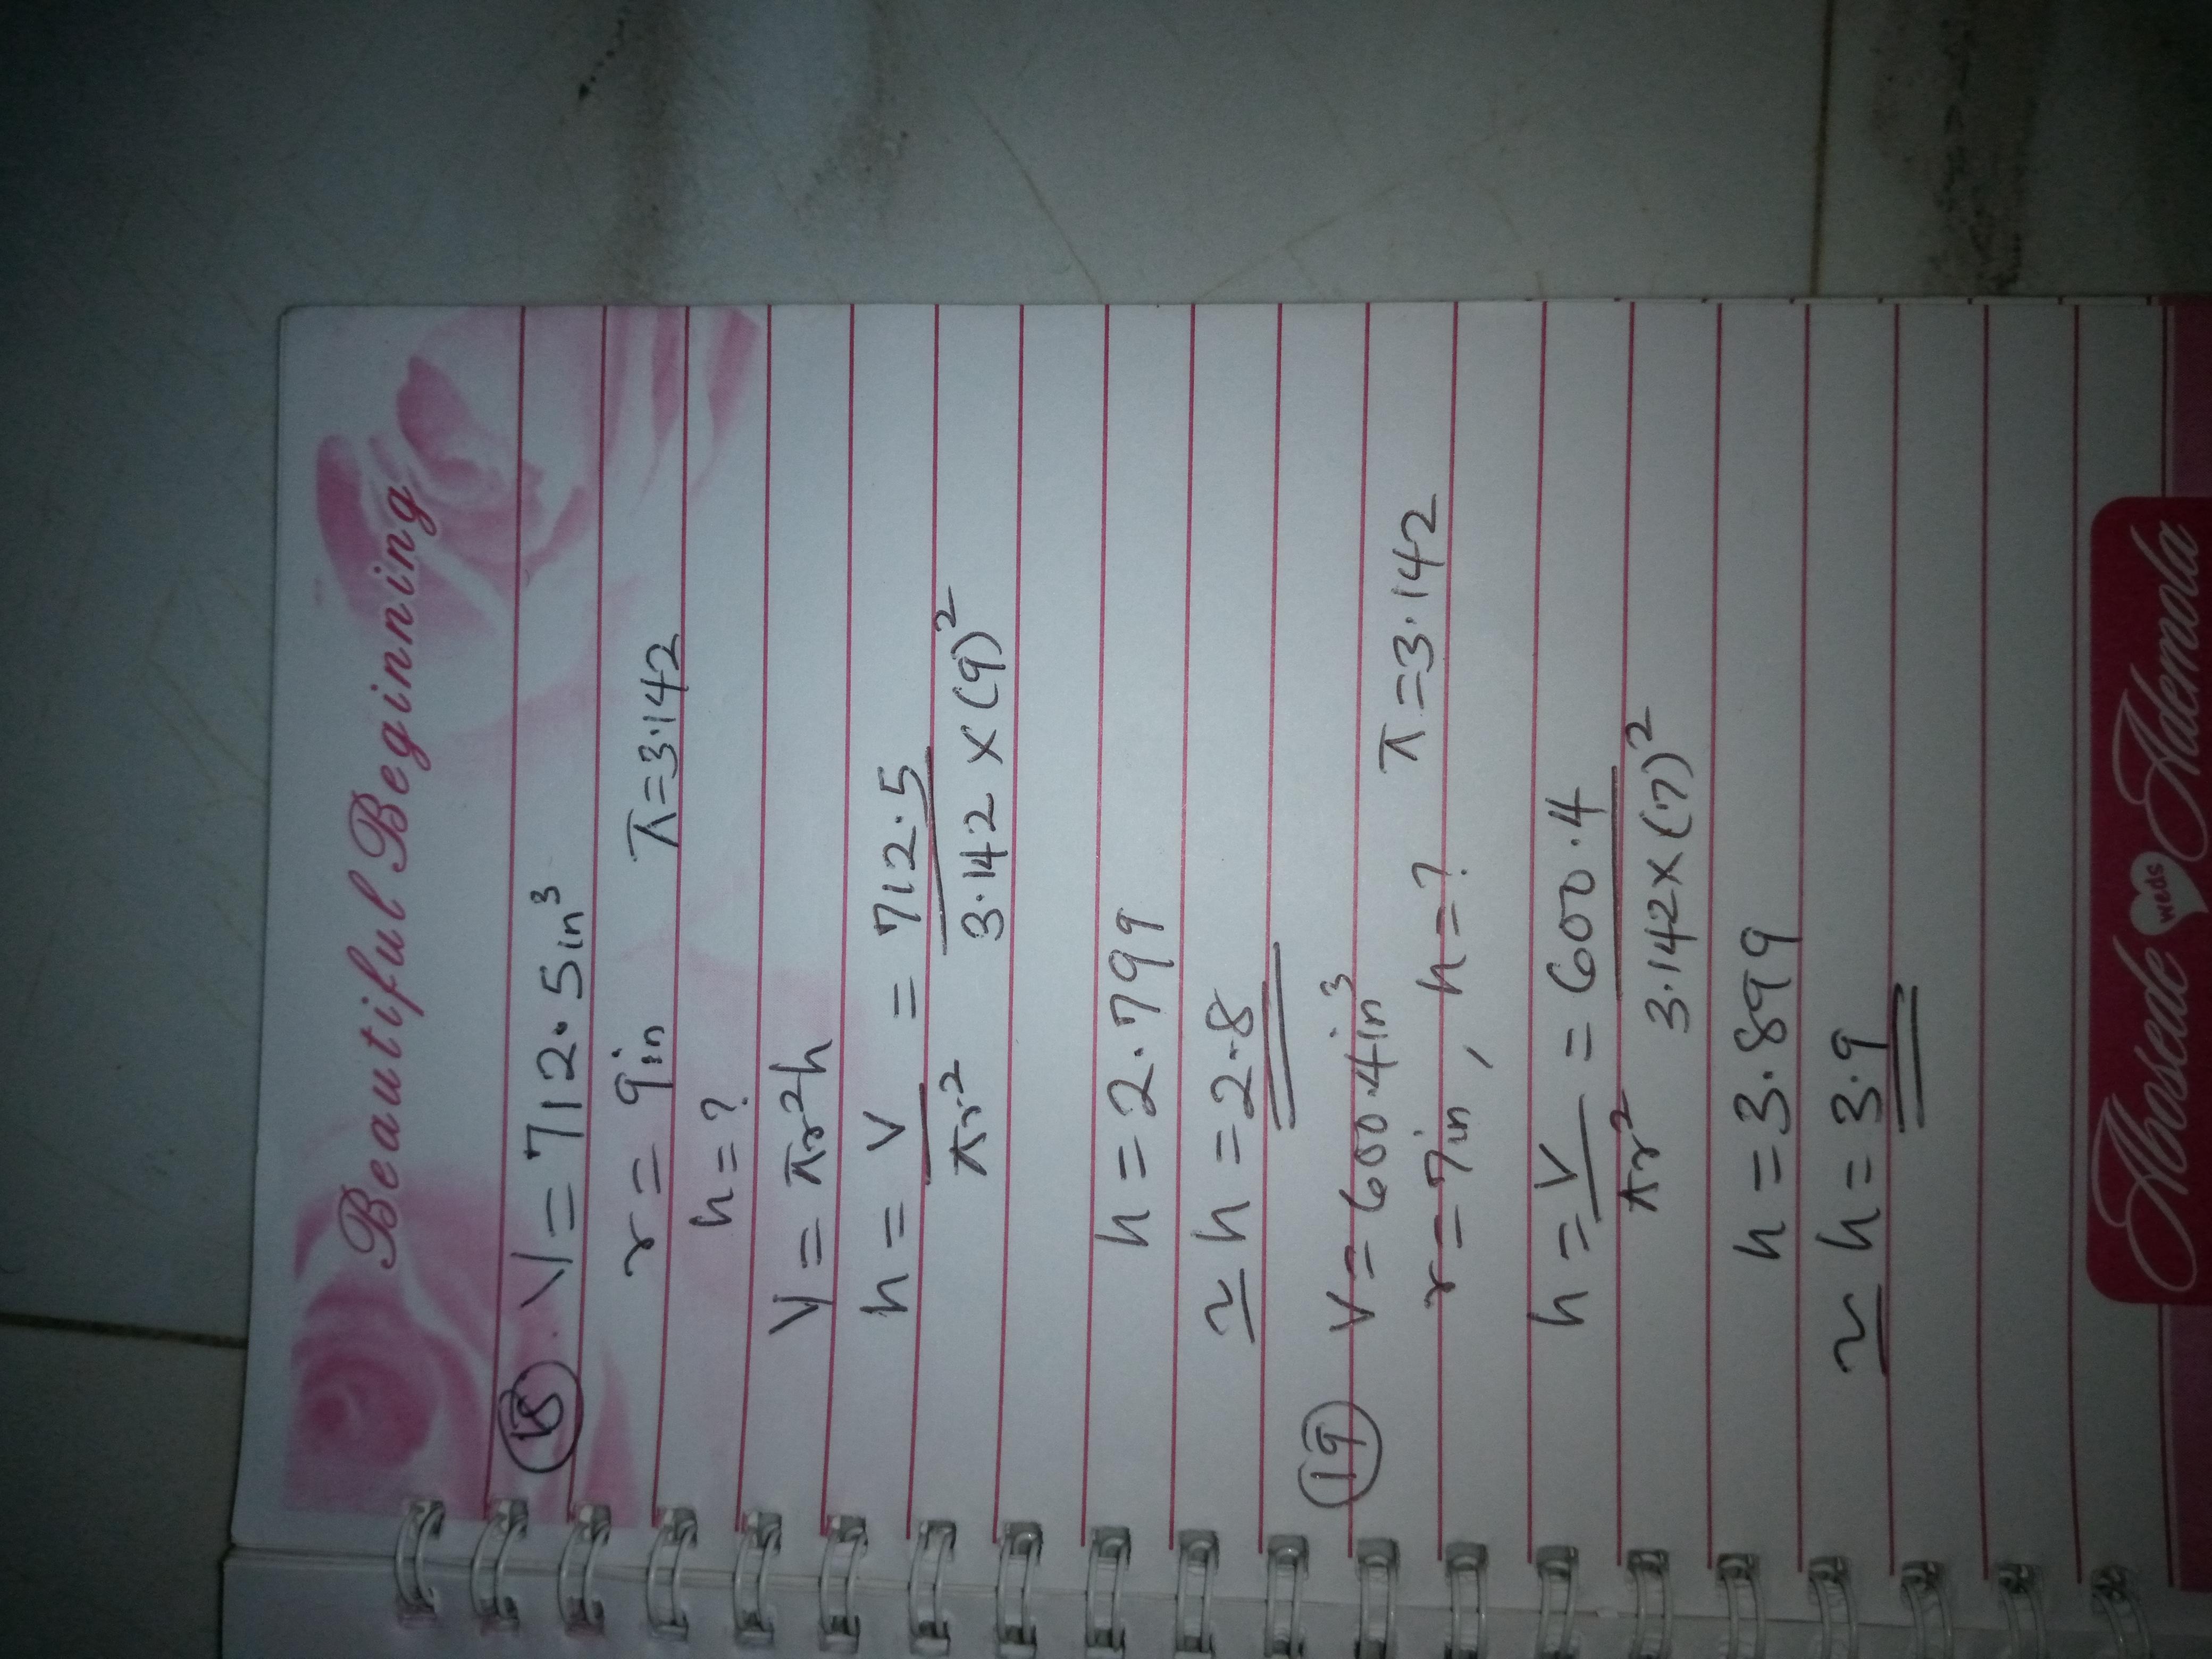 Beautiful Beginning
⑱ V = 712.5in³
r = 9in π = 3.142
h = ?
V = πr²h
h = V/πr² = 712.5/3.142 x (9)²
h = 2.799
≃ h = 2.8
⑲ V = 600.4in³
r = 7in, h = ? π = 3.142
h = V/πr² = 600.4/3.142 x (7)²
h = 3.899
≃ h = 3.9
Abosede weds Ademola